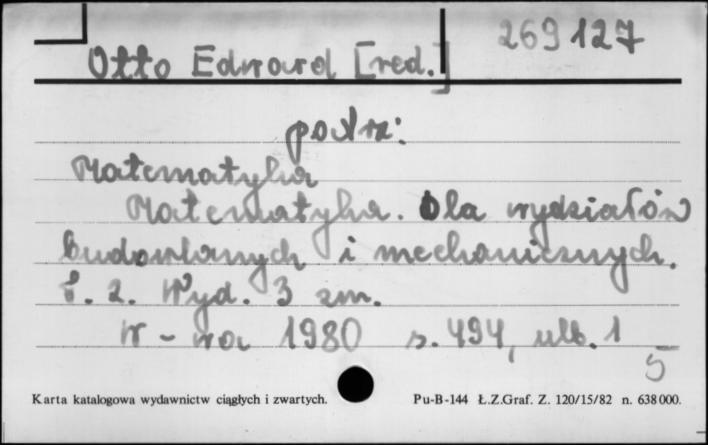 269127
Otto Edward [red.]
patrz:
Matematyka
Matematyka. Dla wydziałów
budowlanych i mechanicznych.
T. 2. Wyd. 3 zm.
W-wa 1980 s. 494, nlb. 1
5
Karta katalogowa wydawnictw ciągłych i zwartych. Pu-B-144 Ł.Z.Graf. Z. 120/15/82 n. 638000.